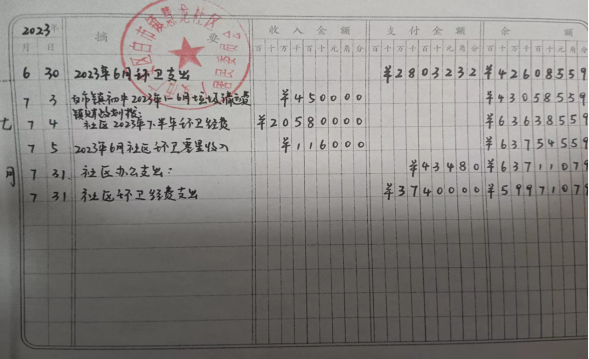 2023年 摘 要 收入金额 支付金额 余 额
月 日 百十万千百十元角分 百十万千百十元角分 百十万千百十元角分
6 30 2023年6月环卫支出 ¥2803232 ¥42608559
7 3 白市镇初中2023年1-6月垃圾清运费 ¥450000 ¥43058559
镇财政划拨
7 4 社区2023年下半年环卫经费 ¥20580000 ¥63638559
7 5 2023年6月社区环卫零星收入 ¥116000 ¥63754559
7 31 社区办公支出: ¥43480 ¥63711079
7 31 社区环卫经费支出 ¥3740000 ¥59971079
七
月